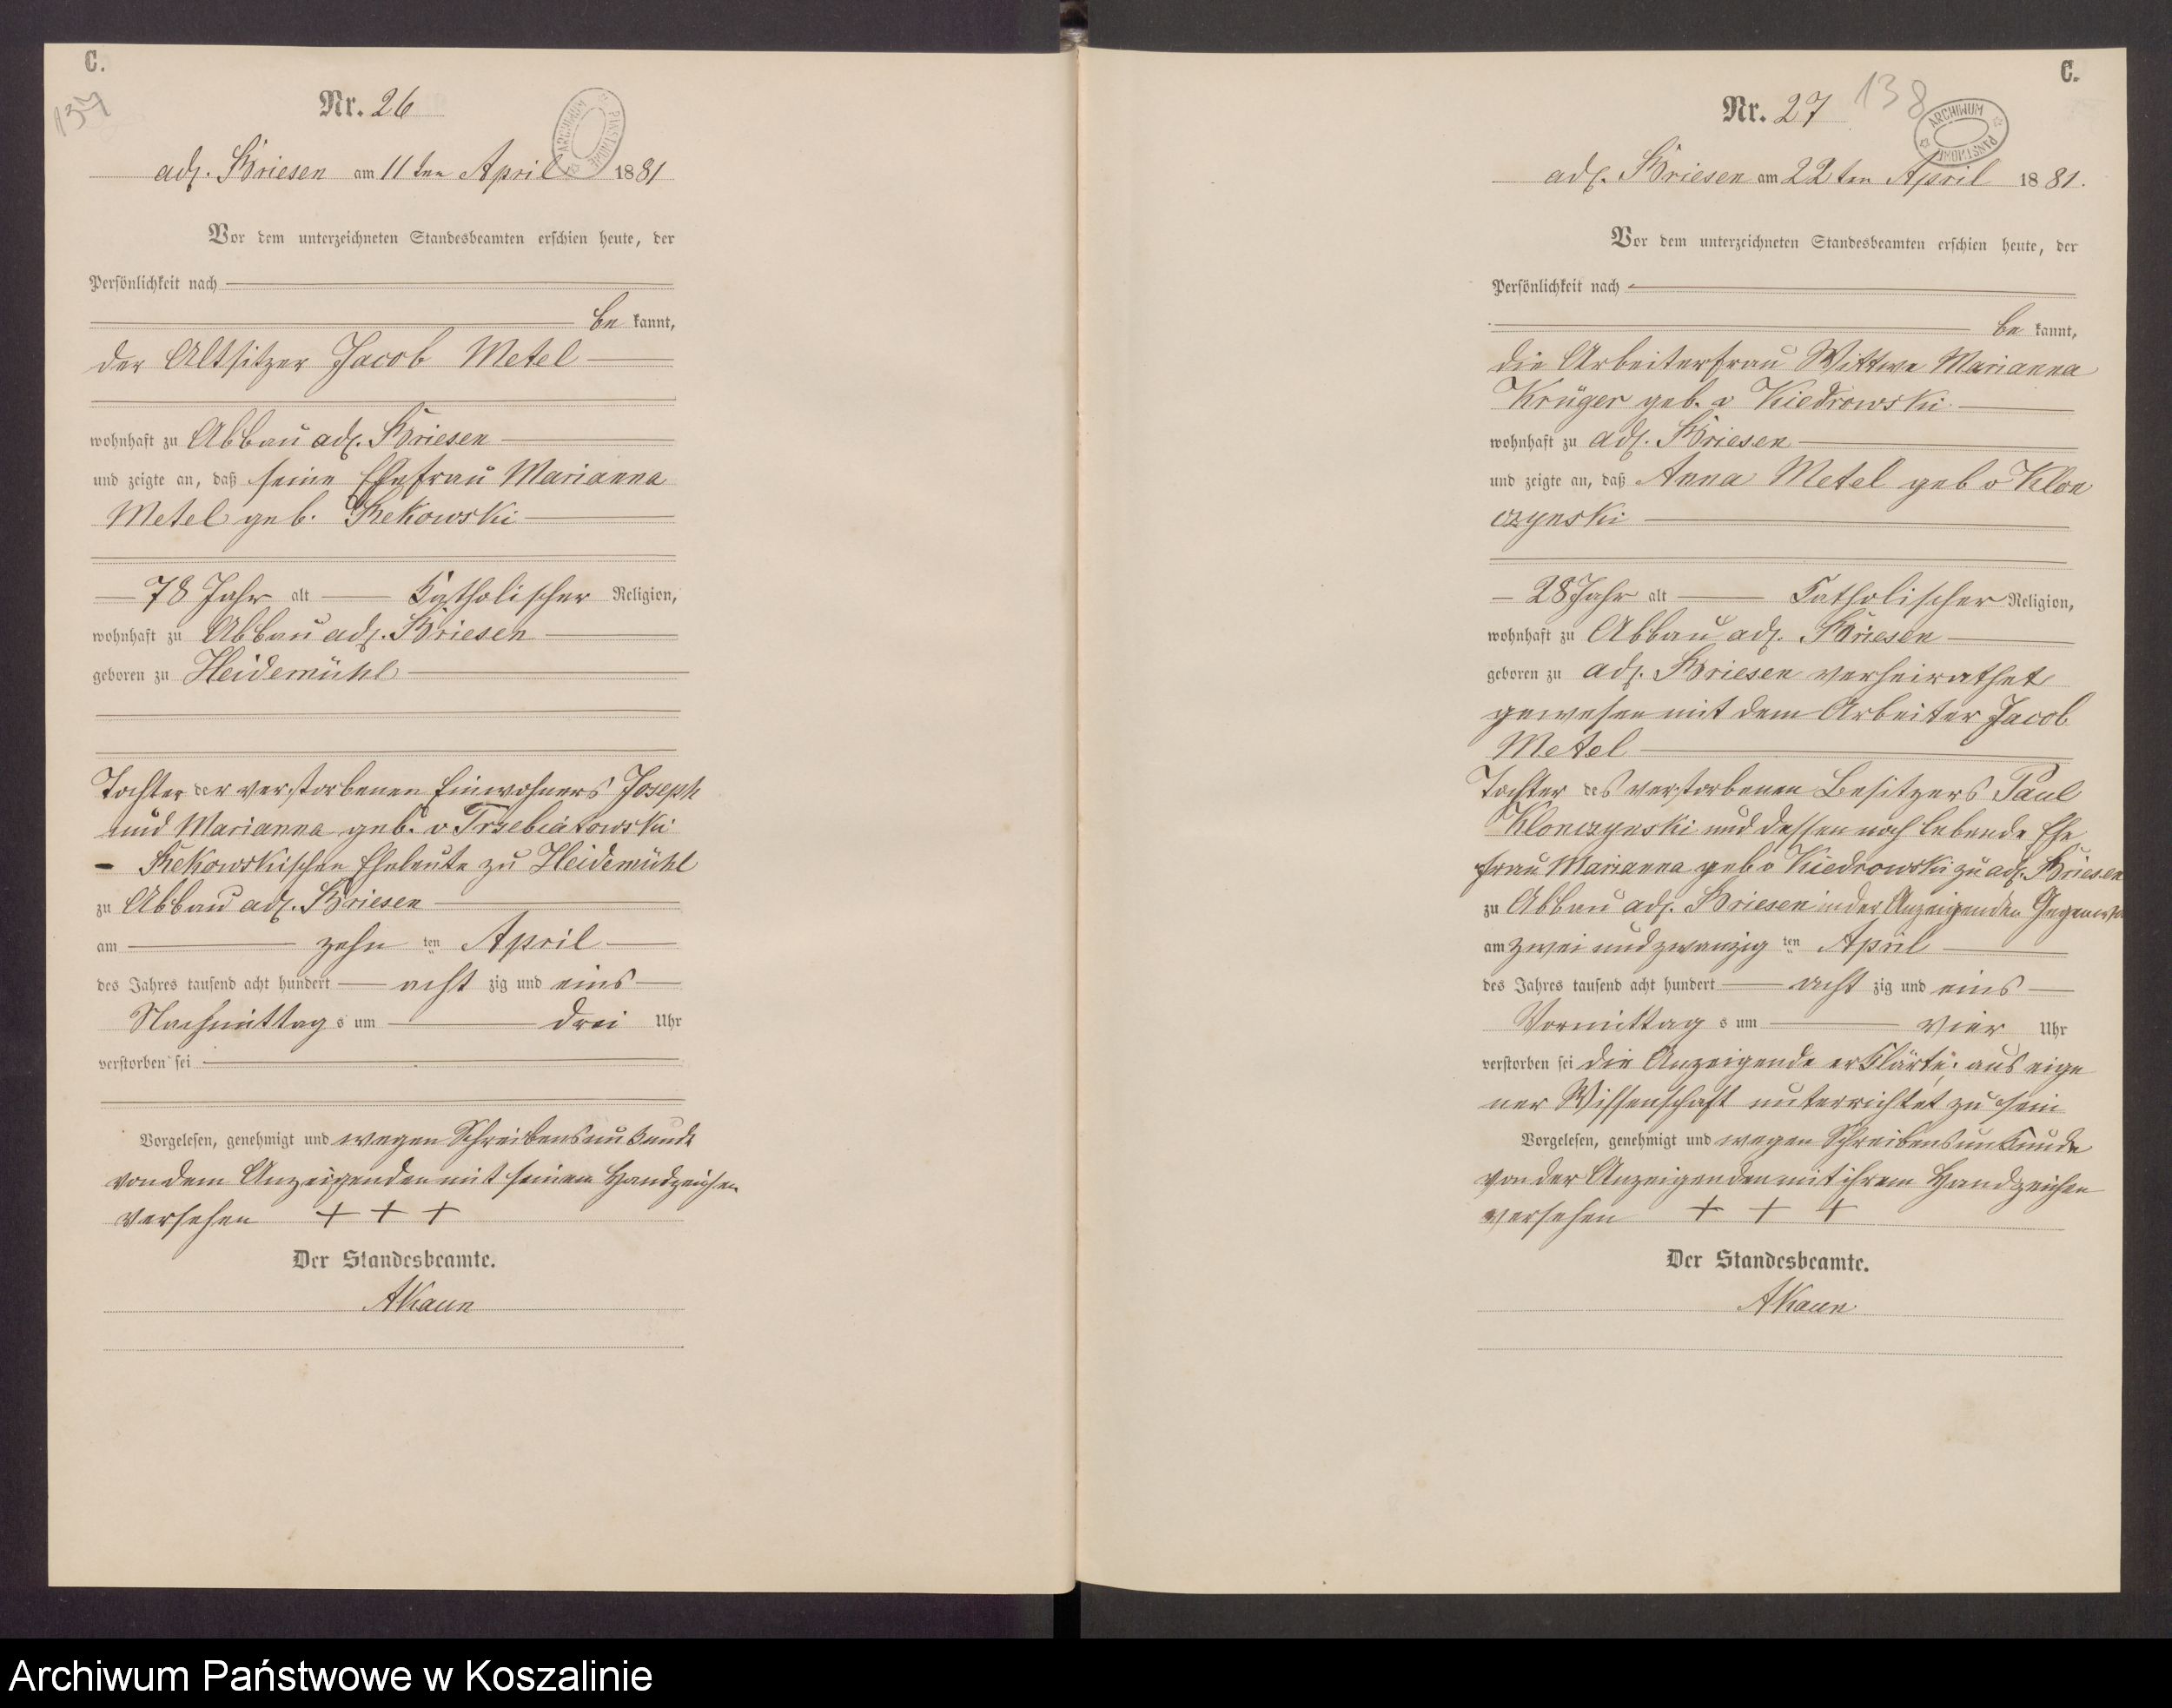 C.
137
Nr. 26
ARCHIWUM PAŃSTWOWE
adl. Briesen am 11 ten April 1881
Vor dem unterzeichneten Standesbeamten erschien heute, der
Persönlichkeit nach
be kannt,
der Altsitzer Jacob Metel
wohnhaft zu Abbau adl. Briesen
und zeigte an, daß seine Ehefrau Marianna
Metel geb. Rekowski
78 Jahr alt Katholischer Religion,
wohnhaft zu Abbau adl. Briesen
geboren zu Heidemühl
Tochter der verstorbenen Einwohners Joseph
und Marianna geb. v Trzebiatowski
Rekowskischen Eheleute zu Heidemühl
zu Abbau adl. Briesen
am zehn ten April
des Jahres tausend acht hundert acht zig und eins
Nachmittag s um drei Uhr
verstorben sei
Vorgelesen, genehmigt und wegen Schreibensunkunde
von dem Anzeigenden mit seinem Handzeichen
versehen + + +
Der Standesbeamte.
AKaun
C.
138
Nr. 27
ARCHIWUM PAŃSTWOWE
adl. Briesen am 22 ten April 1881.
Vor dem unterzeichneten Standesbeamten erschien heute, der
Persönlichkeit nach
be kannt,
die Arbeiterfrau Wittwe Marianna
Krüger geb. v Kiedrowski
wohnhaft zu adl. Briesen
und zeigte an, daß Anna Metel geb v Klon
czynski
28 Jahr alt Katholischer Religion,
wohnhaft zu Abbau adl. Briesen
geboren zu adl. Briesen verheirathet
gewesen mit dem Arbeiter Jacob
Metel
Tochter des verstorbenen Besitzers Paul
Klonczynski und dessen noch lebende Ehe
frau Marianna geb v Kiedrowski zu adl. Briesen
zu Abbau adl. Briesen in der Anzeigenden Gegenwa
am zwei und zwanzig ten April
des Jahres tausend acht hundert acht zig und eins
Vormittag s um vier Uhr
verstorben sei die Anzeigende erklärte; aus eige
ner Wissenschaft unterrichtet zu sein
Vorgelesen, genehmigt und wegen Schreibensunkunde
von der Anzeigenden mit ihrem Handzeichen
versehen + + +
Der Standesbeamte.
AKaun
Archiwum Państwowe w Koszalinie